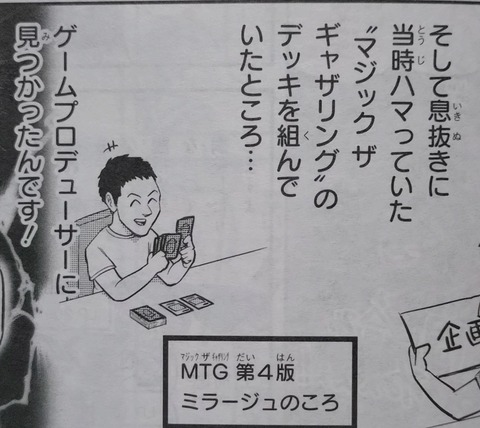 そして息抜きに
当時ハマっていた
“マジック ザ
ギャザリング”の
デッキを組んで
いたところ…
ゲームプロデューサーに
見つかったんです！
MTG 第4版
ミラージュのころ
企画